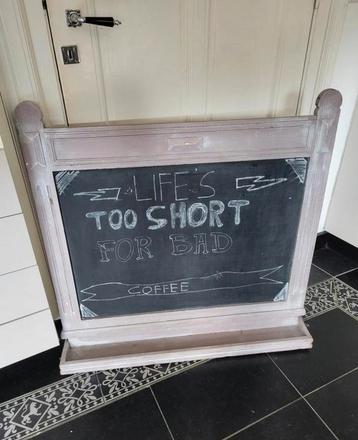 LIFE'S
TOO SHORT
FOR BAD
COFFEE